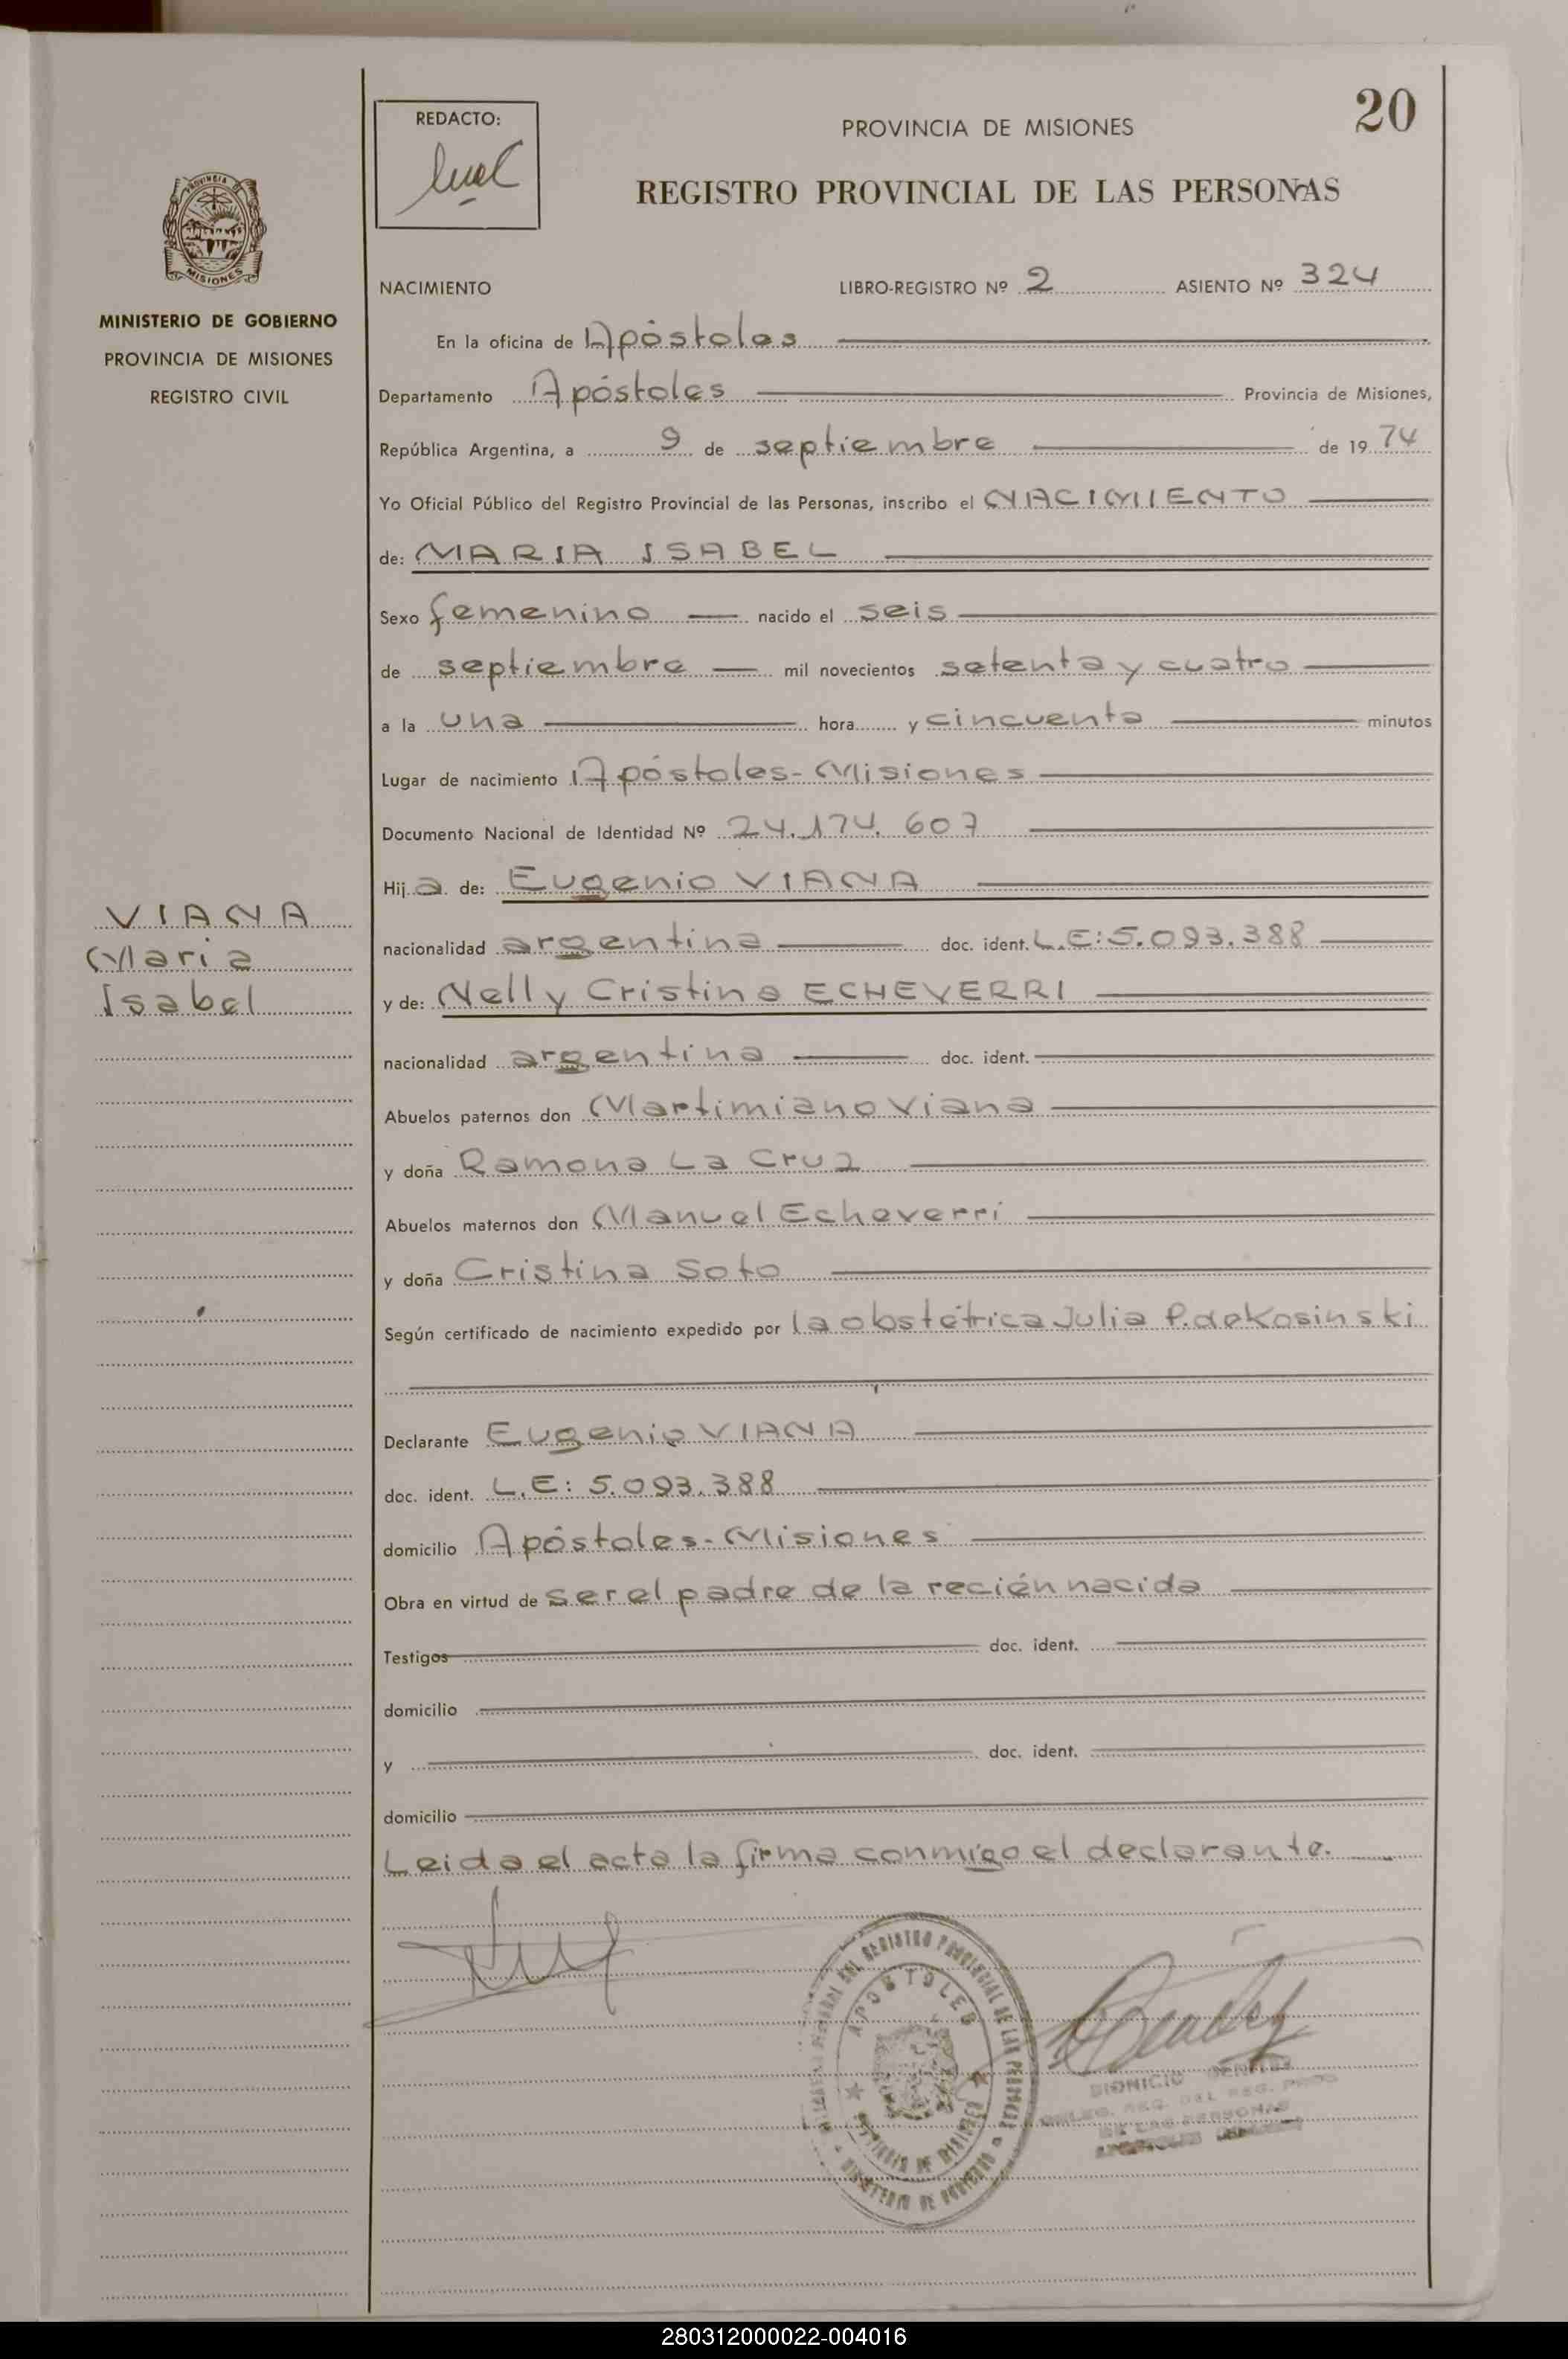 20
REDACTO:
PROVINCIA DE MISIONES
REGISTRO PROVINCIAL DE LAS PERSONAS
PROVINCIA DE
MISIONES
MINISTERIO DE GOBIERNO
PROVINCIA DE MISIONES
REGISTRO CIVIL
NACIMIENTO LIBRO-REGISTRO Nº 2 ASIENTO Nº 324
En la oficina de Apóstoles
Departamento Apóstoles Provincia de Misiones,
República Argentina, a 9 de septiembre de 1974
Yo Oficial Público del Registro Provincial de las Personas, inscribo el NACIMIENTO
de: MARIA ISABEL
Sexo femenino nacido el seis
de septiembre mil novecientos setenta y cuatro
a la una hora y cincuenta minutos
Lugar de nacimiento Apóstoles-Misiones
Documento Nacional de Identidad Nº 24.174.607
Hija de: Eugenio VIANA
nacionalidad argentina doc. ident. L.E:5.093.388
y de: Nelly Cristina ECHEVERRI
nacionalidad argentina doc. ident.
VIANA
Maria
Isabel
Abuelos paternos don Martimiano Viana
y doña Ramona La Cruz
Abuelos maternos don Manuel Echeverri
y doña Cristina Soto
Según certificado de nacimiento expedido por la obstétrica Julia P. de Kosinski
Declarante Eugenio VIANA
doc. ident. L.E: 5.093.388
domicilio Apóstoles-Misiones
Obra en virtud de ser el padre de la recién nacida
Testigos doc. ident.
domicilio
y doc. ident.
domicilio
Leida el acta la firma conmigo el declarante.
REGISTRO PROVINCIAL DE LAS PERSONAS
APOSTOLES
PROVINCIA DE MISIONES
MINISTERIO DE GOBIERNO
DIONICIO BENITEZ
DE LAS PERSONAS
280312000022-004016